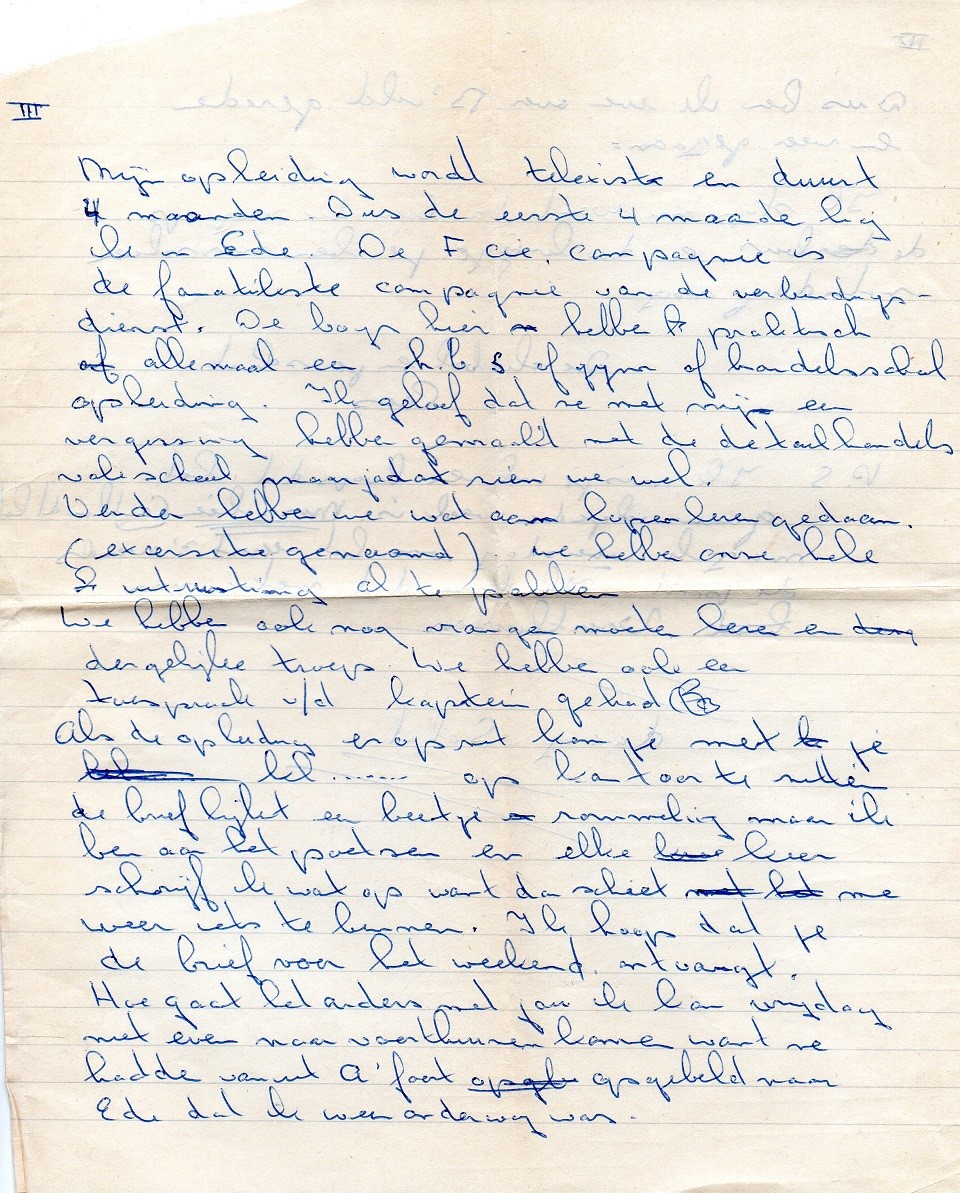 III
Mijn opleiding wordt telexist en duurt
4 maanden. Dus de eerste 4 maande lig
ik in Ede. De F cie. compagnie is
de fanatikste compagnie van de verbindings-
dienst. De boys hier hebbe praktisch
of allemaal een h.b s of gym of handelsschool
opleiding. Ik geloof dat ze met mij een
vergissing hebbe gemaakt met de detailhandels
vakschool maar jadat zien we wel.
Verder hebben we wat aan lopen leren gedaan.
(excersitie genaamd). we hebbe onze hele
uitrusting al te pakken
We hebbe ook nog rangen moete leren en
dergelijke troep. We hebbe ook een
toespraak v/d kapitein gehad
Als de opleiding erop zit kom je met je
lul ....... op kantoor te zitten
de brief lijkt een beetje rommelig maar ik
ben aan het poetsen en elke keer
schrijf ik wat op want dan schiet me
weer iets te binnen. Ik hoop dat je
de brief voor het weekend ontvangt.
Hoe gaat het anders met jou ik kon vrijdag
niet even naar voorthuizen komen want ze
hadde vanuit A'foort opgebeld naar
Ede dat ik weer onderweg was.